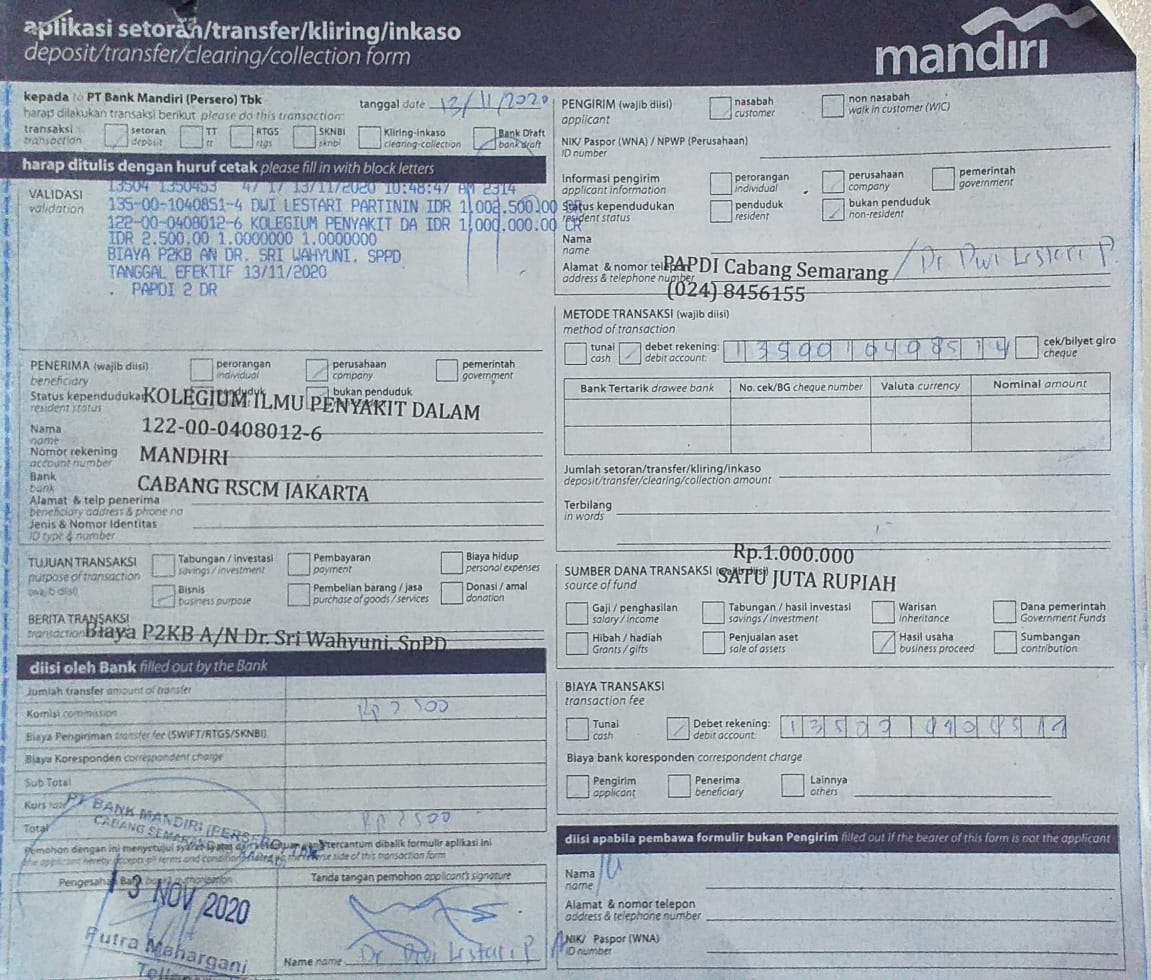 aplikasi setoran/transfer/kliring/inkaso
deposit/transfer/clearing/collection form
mandiri
kepada to PT Bank Mandiri (Persero) Tbk
tanggal date 13/11/2020
harap dilakukan transaksi berikut please do this transaction:
transaksi
transaction
setoran
deposit
TT
tt
RTGS
rtgs
SKNBI
sknbi
Kliring-inkaso
clearing-collection
Bank Draft
bank draft
harap ditulis dengan huruf cetak please fill in with block letters
VALIDASI
validation
13504 1350453 47 17 13/11/2020 10:48:47 AM 2314
135-00-1040851-4 DWI LESTARI PARTININ IDR 1,002,500.00
122-00-0408012-6 KOLEGIUM PENYAKIT DA IDR 1,000,000.00 CR
IDR 2.500.00 1.0000000 1.0000000
BIAYA P2KB AN DR. SRI WAHYUNI. SPPD
TANGGAL EFEKTIF 13/11/2020
. PAPDI 2 DR
PENERIMA (wajib diisi)
beneficiary
perorangan
individual
perusahaan
company
pemerintah
government
Status kependudukan
resident status
penduduk
bukan penduduk
KOLEGIUM ILMU PENYAKIT DALAM
Nama
name
122-00-0408012-6
Nomor rekening
account number
MANDIRI
Bank
bank
CABANG RSCM JAKARTA
Alamat & telp penerima
beneficiary address & phone no
Jenis & Nomor Identitas
ID type & number
TUJUAN TRANSAKSI
purpose of transaction
(wajib diisi)
Tabungan / investasi
savings / investment
Pembayaran
payment
Biaya hidup
personal expenses
Bisnis
business purpose
Pembelian barang / jasa
purchase of goods / services
Donasi / amal
donation
BERITA TRANSAKSI
transaction
Biaya P2KB A/N Dr. Sri Wahyuni, SpPD
diisi oleh Bank filled out by the Bank
Jumlah transfer amount of transfer
Komisi commission
Rp 2 500
Biaya Pengiriman transfer fee (SWIFT/RTGS/SKNBI)
Biaya Koresponden correspondent charge
Sub Total
Kurs rate
Total
Rp 2 500
PT. BANK MANDIRI (PERSERO)
CABANG SEMARANG
Pemohon dengan ini menyetujui tercantum dibalik formulir aplikasi ini
the applicant hereby accepts all terms and conditions reverse side of this transaction form
Pengesahan Bank bank's authorization
Tanda tangan pemohon applicant's signature
13 NOV 2020
Putra Mahargani
Teller
Name name Dr Dwi Lestari P
PENGIRIM (wajib diisi)
applicant
nasabah
customer
non nasabah
walk in customer (WIC)
NIK/ Paspor (WNA) / NPWP (Perusahaan)
ID number
Informasi pengirim
applicant information
perorangan
individual
perusahaan
company
pemerintah
government
Status kependudukan
resident status
penduduk
resident
bukan penduduk
non-resident
Nama
name
PAPDI Cabang Semarang / Dr Dwi Lestari P.
Alamat & nomor telepon
address & telephone number
(024) 8456155
METODE TRANSAKSI (wajib diisi)
method of transaction
tunai
cash
debet rekening:
debit account:
1350010408514
cek/bilyet giro
cheque
Bank Tertarik drawee bank
No. cek/BG cheque number
Valuta currency
Nominal amount
Jumlah setoran/transfer/kliring/inkaso
deposit/transfer/clearing/collection amount
Terbilang
in words
Rp.1.000.000
SUMBER DANA TRANSAKSI
source of fund
SATU JUTA RUPIAH
Gaji / penghasilan
salary / income
Tabungan / hasil investasi
savings / investment
Warisan
Inheritance
Dana pemerintah
Government Funds
Hibah / hadiah
Grants / gifts
Penjualan aset
sale of assets
Hasil usaha
business proceed
Sumbangan
contribution
BIAYA TRANSAKSI
transaction fee
Tunai
cash
Debet rekening:
debit account:
Biaya bank koresponden correspondent charge
Pengirim
applicant
Penerima
beneficiary
Lainnya
others
diisi apabila pembawa formulir bukan Pengirim filled out if the bearer of this form is not the applicant
Nama
name
Alamat & nomor telepon
address & telephone number
NIK/ Paspor (WNA)
ID number